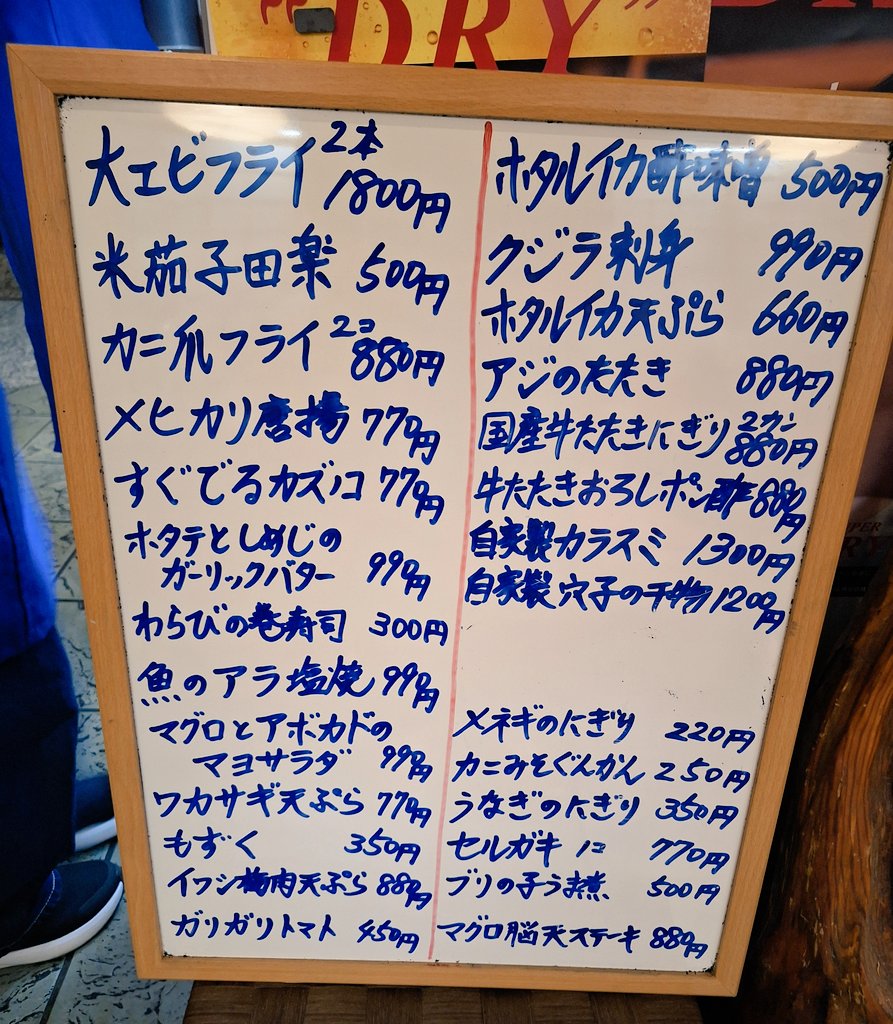 "DRY"
大エビフライ 2本 1800円
米茄子田楽 500円
カニ爪フライ 2コ 880円
メヒカリ唐揚 770円
すぐでるカズノコ 770円
ホタテとしめじの
ガーリックバター 990円
わらびの巻寿司 300円
魚のアラ塩焼 990円
マグロとアボカドの
マヨサラダ 990円
ワカサギ天ぷら 770円
もずく 350円
イワシ梅肉天ぷら 880円
ガリガリトマト 450円
ホタルイカ酢味噌 500円
クジラ刺身 990円
ホタルイカ天ぷら 660円
アジのたたき 880円
国産牛たたきにぎり 2カン 880円
牛たたきおろしポン酢 880円
自家製カラスミ 1300円
自家製穴子の干物 1200円
メネギのにぎり 220円
カニみそぐんかん 250円
うなぎのにぎり 350円
セルガキ 1コ 770円
ブリの子うま煮 500円
マグロ脳天ステーキ 880円